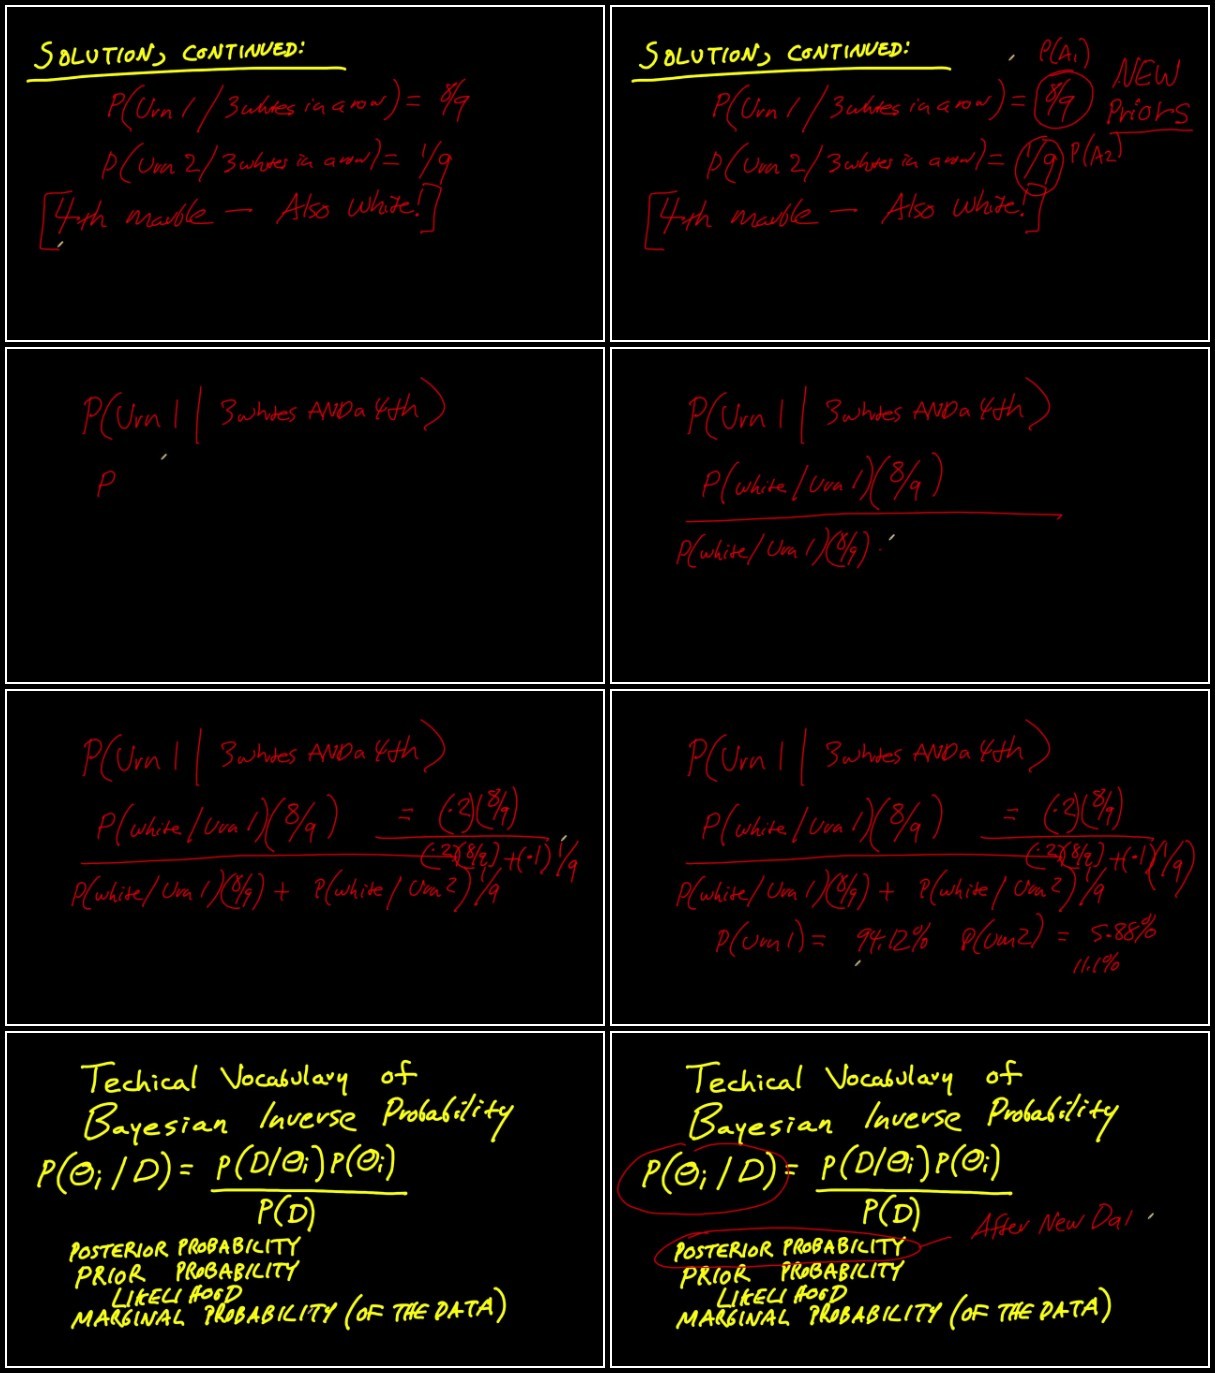 SOLUTION, CONTINUED:
P(Urn 1 / 3 whites in a row) = 8/9
P(Urn 2 / 3 whites in a row) = 1/9
[4th marble — Also White!]
SOLUTION, CONTINUED:
P(A1)
NEW
Priors
P(Urn 1 / 3 whites in a row) = 8/9
P(Urn 2 / 3 whites in a row) = 1/9 P(A2)
[4th marble — Also White!]
P(Urn 1 | 3 whites AND a 4th)
P
P(Urn 1 | 3 whites AND a 4th)
P(white / Urn 1)(8/9)
P(white / Urn 1)(8/9)
P(Urn 1 | 3 whites AND a 4th)
P(white / Urn 1)(8/9) = (.2)(8/9)
(.2)(8/9) + (.1) 1/9
P(white / Urn 1)(8/9) + P(white / Urn 2) 1/9
P(Urn 1 | 3 whites AND a 4th)
P(white / Urn 1)(8/9) = (.2)(8/9)
(.2)(8/9) + (.1)(1/9)
P(white / Urn 1)(8/9) + P(white / Urn 2) 1/9
P(Urn 1) = 94.12% P(Urn 2) = 5.88%
11.1%
Techical Vocabulary of
Bayesian Inverse Probability
P(Θi / D) = P(D/Θi) P(Θi)
P(D)
POSTERIOR PROBABILITY
PRIOR PROBABILITY
LIKELIHOOD
MARGINAL PROBABILITY (OF THE DATA)
Techical Vocabulary of
Bayesian Inverse Probability
P(Θi / D) = P(D/Θi) P(Θi)
P(D)
After New Dat
POSTERIOR PROBABILITY
PRIOR PROBABILITY
LIKELIHOOD
MARGINAL PROBABILITY (OF THE DATA)